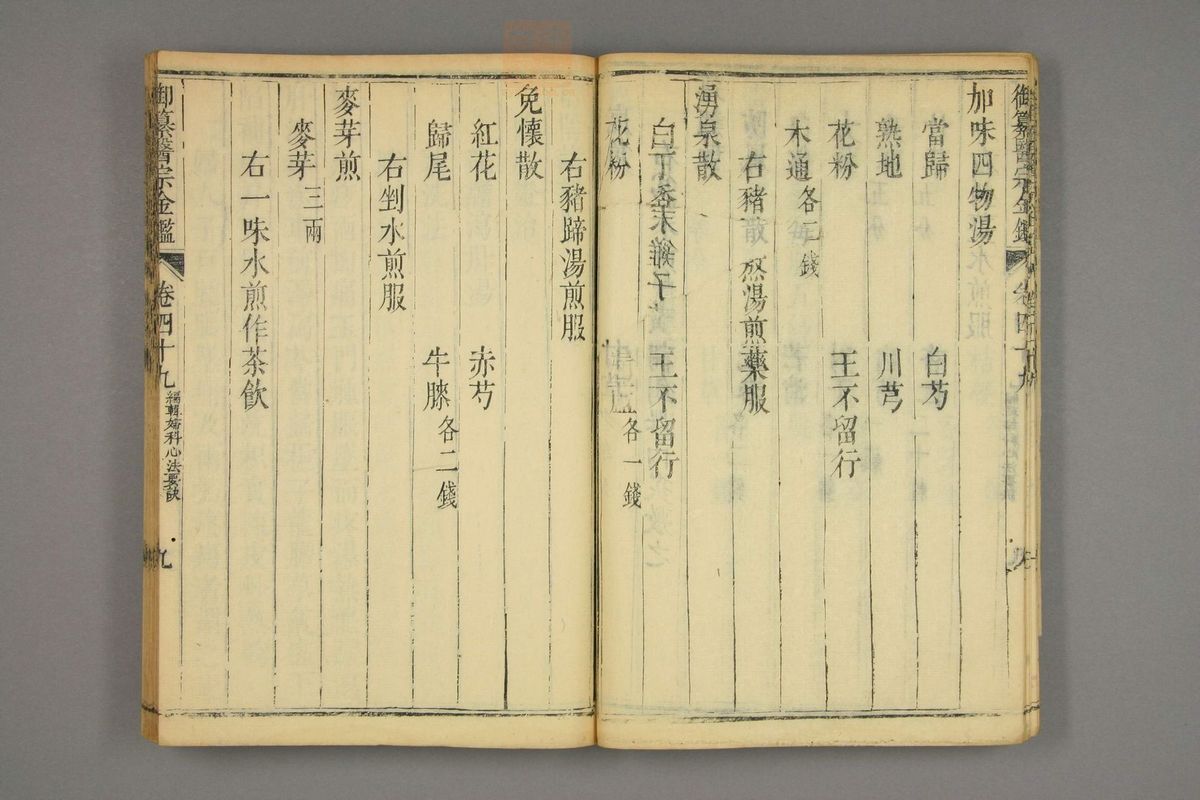 加味四物湯
當歸 白芍
熟地 川芎
花粉 王不留行
木通各二錢
右豬 湯煎藥服
湧泉散
白丁香 王不留行
花粉 各一錢
右豬蹄湯煎服
免懷散
紅花 赤芍
歸尾 牛膝各二錢
右剉水煎服
麥芽煎
麥芽三兩
右一味水煎作茶飲
御纂醫宗金鑑 卷四十九 編輯婦科心法要訣 九